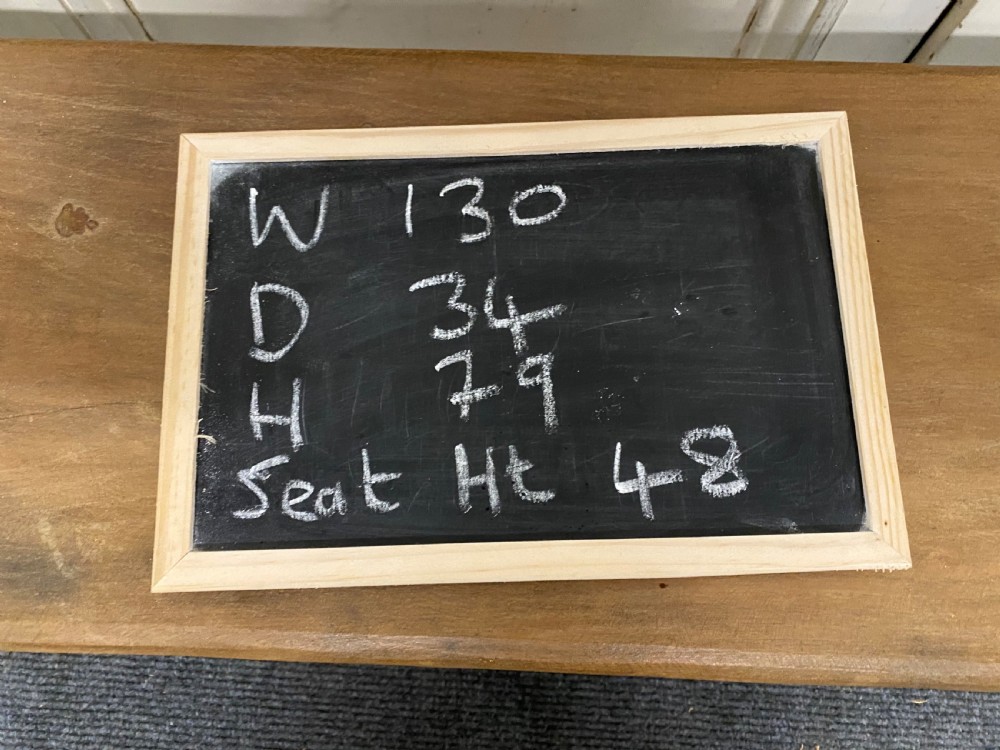 W 130
D 34
H 79
Seat Ht 48